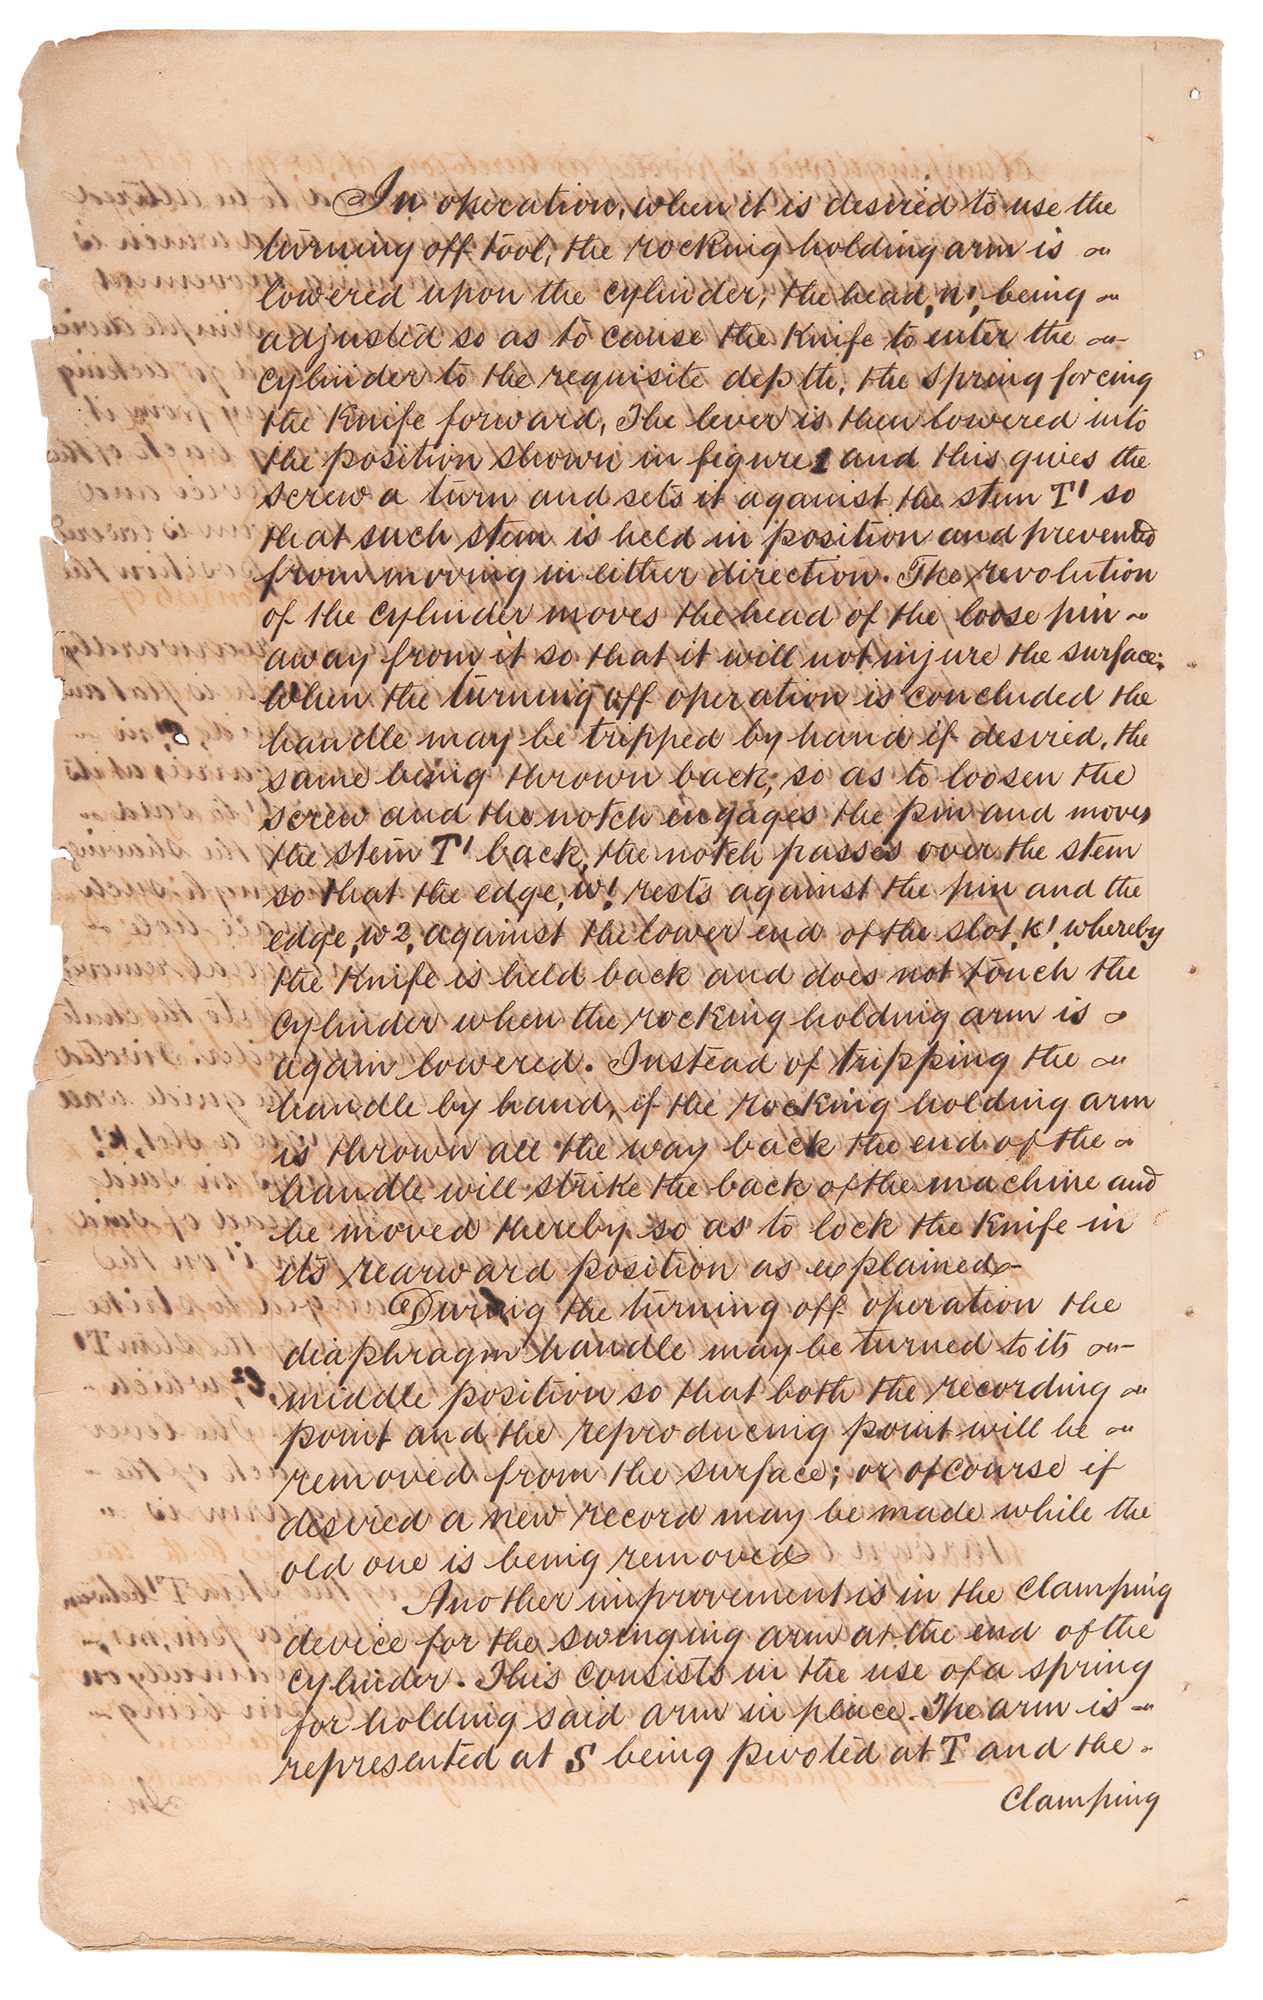 In operation, when it is desired to use the
turning off tool, the rocking holding arm is
lowered upon the cylinder, the head, n', being
adjusted so as to cause the Knife to enter the
cylinder to the requisite depth, the spring forcing
the Knife forward, The lever is then lowered into
the position shown in figure 1 and this gives the
screw a turn and sets it against the stem T' so
that such stem is held in position and prevented
from moving in either direction. The revolution
of the cylinder moves the head of the loose pin
away from it so that it will not injure the surface;
When the turning off operation is concluded the
handle may be tripped by hand if desired, the
same being thrown back, so as to loosen the
screw and the notch engages the pin and moves
the stem T' back, the notch passes over the stem
so that the edge, w' rests against the pin and the
edge, w2, against the lower end of the slot, k', whereby
the Knife is held back and does not touch the
Cylinder when the rocking holding arm is
again lowered. Instead of tripping the
handle by hand, if the rocking holding arm
is thrown all the way back the end of the
handle will strike the back of the machine and
be moved thereby so as to lock the Knife in
its rearward position as explained
During the turning off operation the
diaphragm handle may be turned to its
middle position so that both the recording
point and the reproducing point will be
removed from the surface; or of course if
desired a new record may be made while the
old one is being removed
Another improvement is in the Clamping
device for the swinging arm at the end of the
Cylinder. This consists in the use of a spring
for holding said arm in place. The arm is
represented at S being pivoted at T and the
Clamping